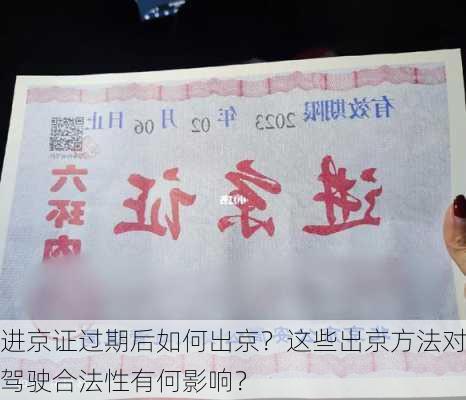 有效期限 2023 年 02 月 06 日止
进京证
六环内
进京证过期后如何出京？这些出京方法对
驾驶合法性有何影响？